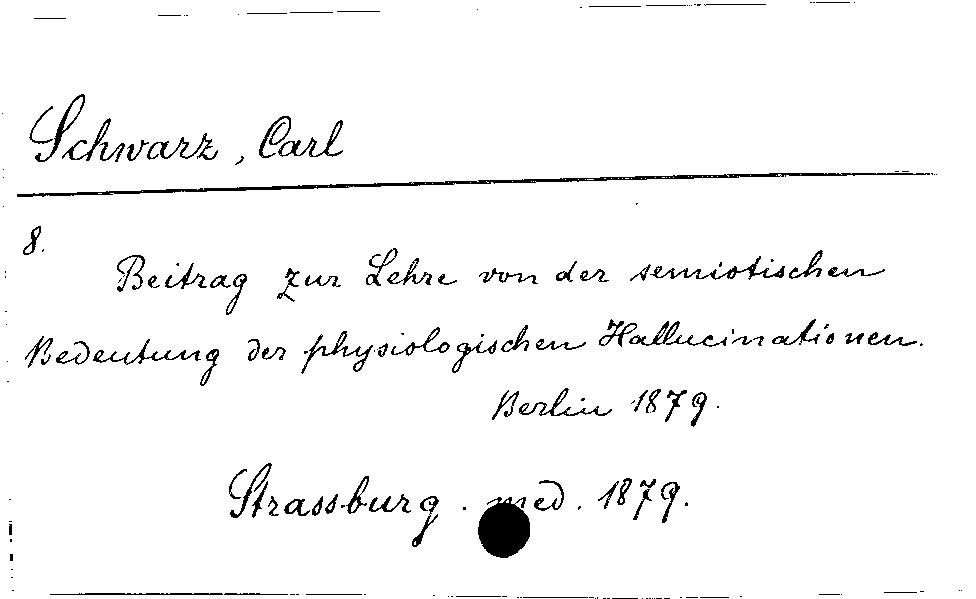 Schwarz, Carl
8.
Beitrag zur Lehre von der semiotischen
Bedeutung der physiologischen Hallucinationen.
Berlin 1879.
Strassburg. med. 1879.